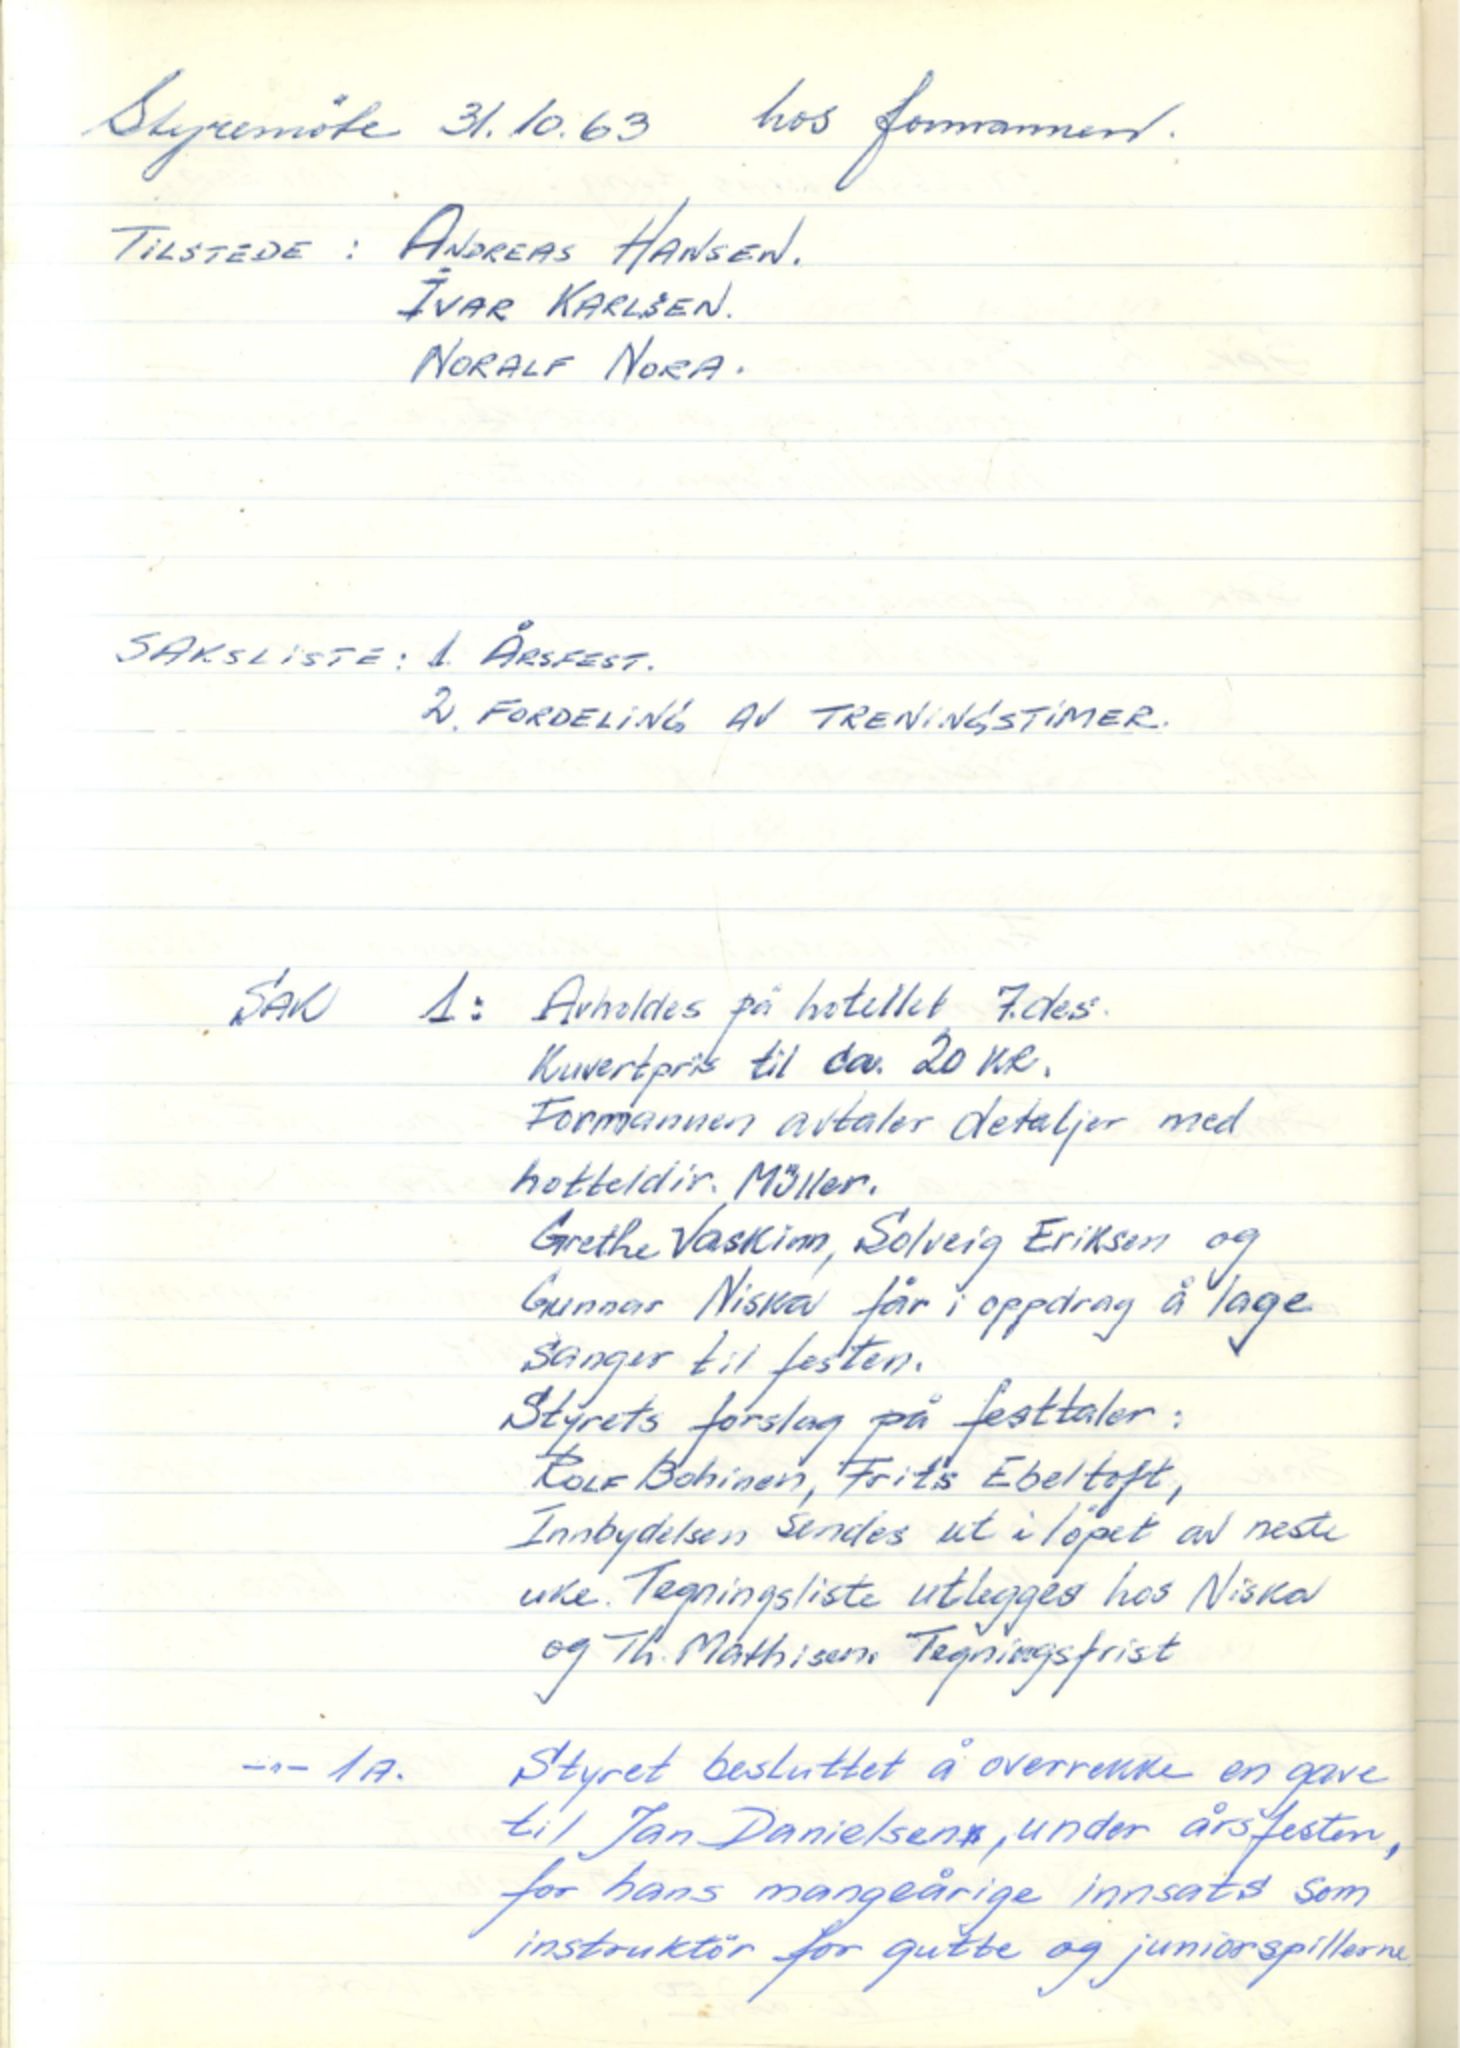 Styremöte 31.10.63 hos formannen.
TILSTEDE : ANDREAS HANSEN.
IVAR KARLSEN.
NORALF NORA.
SAKSLISTE: 1. ÅRSFEST.
2. FORDELING AV TRENINGSTIMER.
SAK 1: Avholdes på hotellet 7.des.
Kuvertpris til ca. 20 KR.
Formannen avtaler detaljer med
hotteldir. Möller.
Grethe Vaskinn, Solveig Eriksen og
Gunnar Niska får i oppdrag å lage
sanger til festen.
Styrets forslag på festtaler:
ROLF Bohinen, Frits Ebeltoft,
Innbydelsen sendes ut i löpet av neste
uke. Tegningsliste utlegges hos Niska
og Th. Mathisen. Tegningsfrist
-"- 1A. Styret besluttet å overrekke en gave
til Jan Danielsen, under årsfesten,
for hans mangeårige innsats som
instruktör for gutte og juniorspillerne